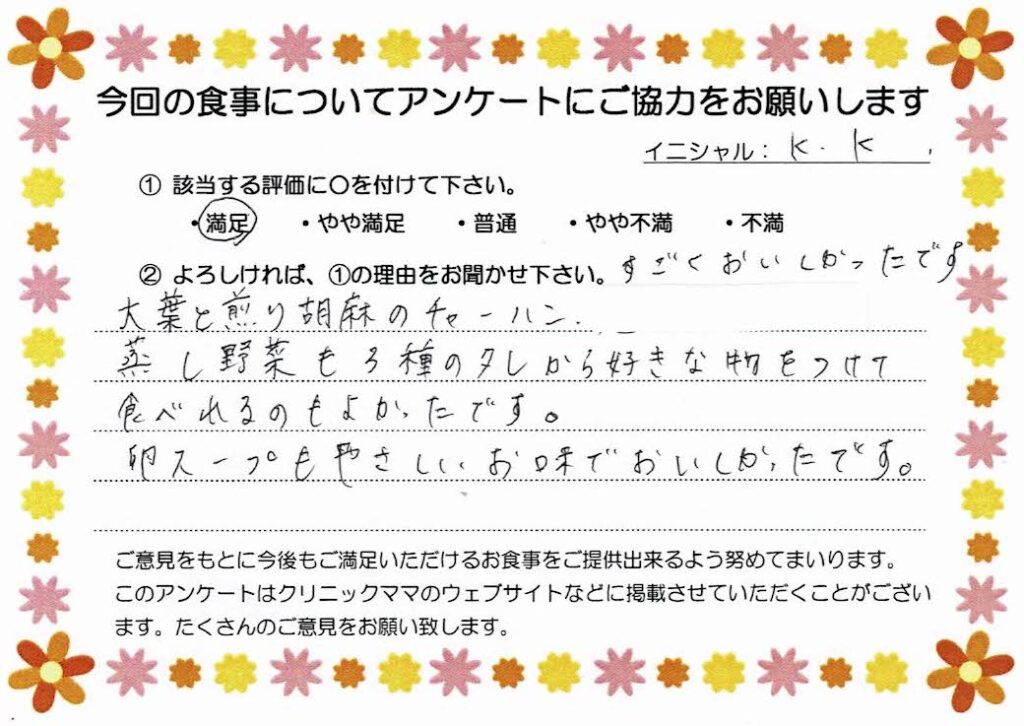 今回の食事についてアンケートにご協力をお願いします
イニシャル: K. K
① 該当する評価に○を付けて下さい。
・満足 ・やや満足 ・普通 ・やや不満 ・不満
② よろしければ、①の理由をお聞かせ下さい。
すごくおいしかったです
大葉と煎り胡麻のチャーハン、
蒸し野菜も3種のタレから好きな物をつけて
食べれるのもよかったです。
卵スープもやさしいお味でおいしかったです。
ご意見をもとに今後もご満足いただけるお食事をご提供出来るよう努めてまいります。
このアンケートはクリニックママのウェブサイトなどに掲載させていただくことがござい
ます。たくさんのご意見をお願い致します。